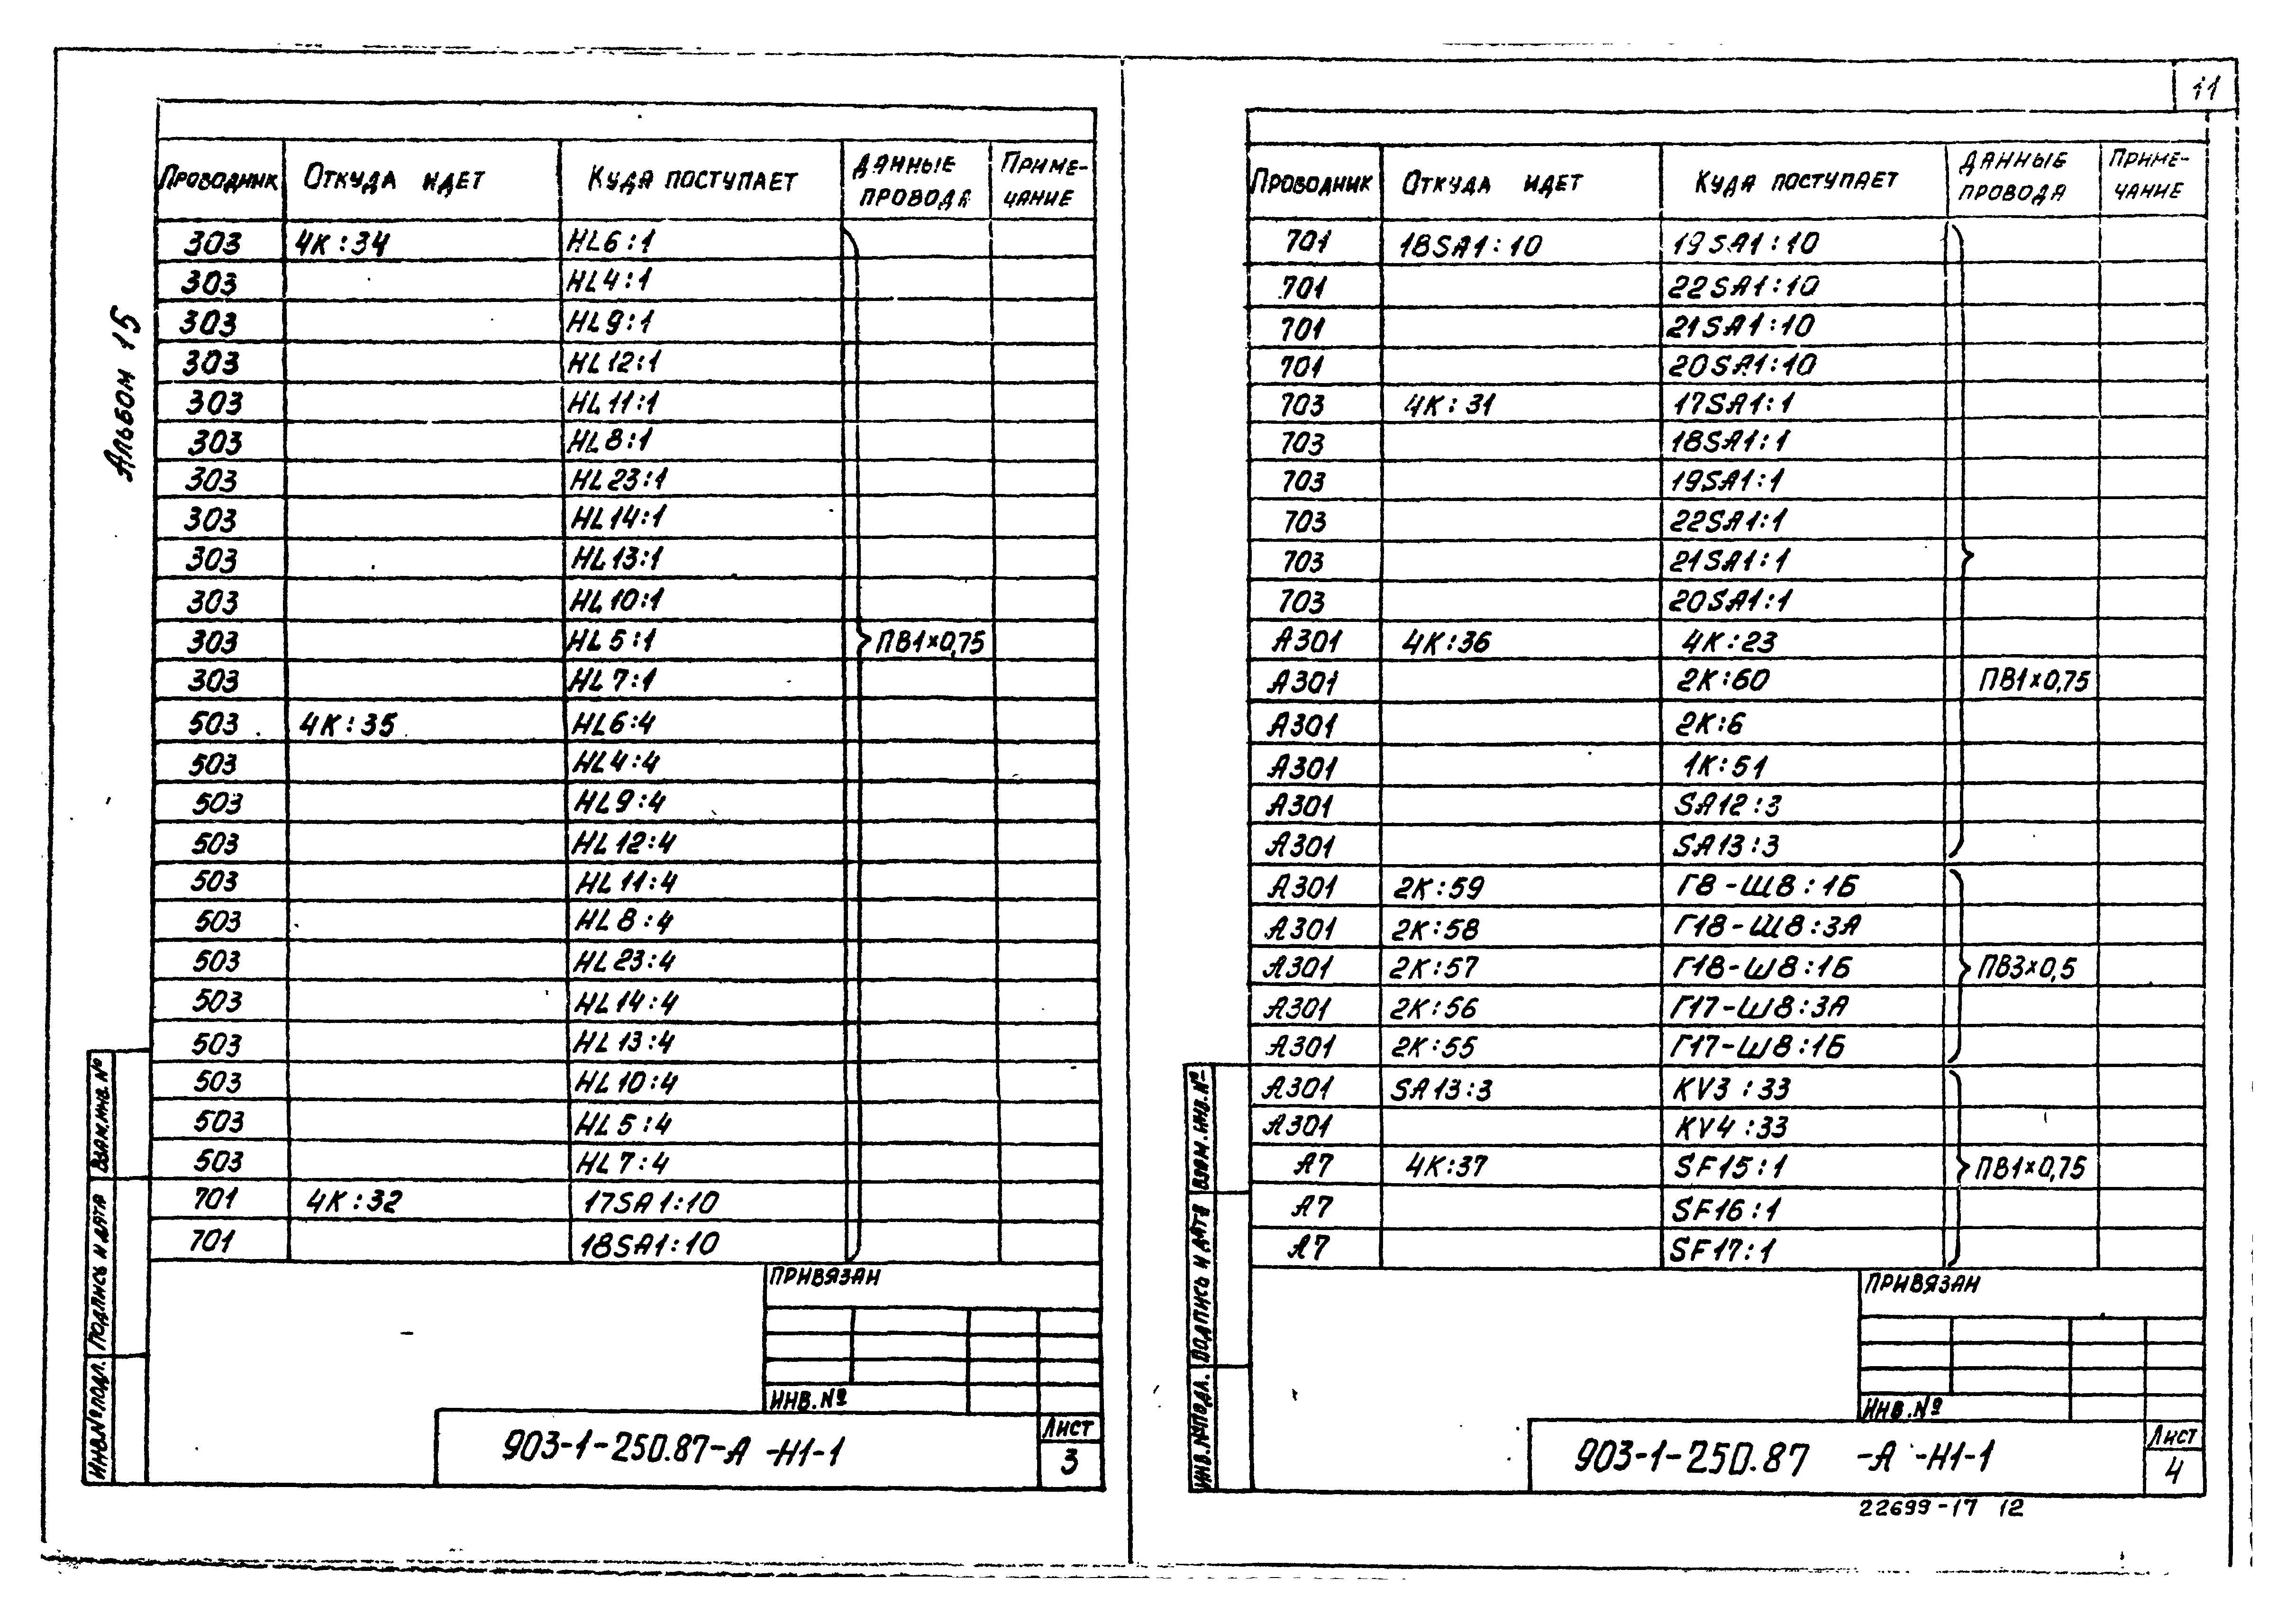 11
Альбом 15
Проводник Откуда идет Куда поступает Данные провода Примечание
303 4К:34 HL6:1
303 HL4:1
303 HL9:1
303 HL12:1
303 HL11:1
303 HL8:1
303 HL23:1
303 HL14:1
303 HL13:1
303 HL10:1
303 HL5:1 ПВ1×0,75
303 HL7:1
503 4К:35 HL6:4
503 HL4:4
503 HL9:4
503 HL12:4
503 HL11:4
503 HL8:4
503 HL23:4
503 HL14:4
503 HL13:4
503 HL10:4
503 HL5:4
503 HL7:4
701 4К:32 17SA1:10
701 18SA1:10
Привязан
Инв.№
903-1-250.87-А -Н1-1
Лист
3
Инв.№подл. Подпись и дата Взам.инв.№
Проводник Откуда идет Куда поступает Данные провода Примечание
701 18SA1:10 19SA1:10
701 22SA1:10
701 21SA1:10
701 20SA1:10
703 4К:31 17SA1:1
703 18SA1:1
703 19SA1:1
703 22SA1:1
703 21SA1:1
703 20SA1:1
А301 4К:36 4К:23
А301 2К:60 ПВ1×0,75
А301 2К:6
А301 1К:51
А301 SA12:3
А301 SA13:3
А301 2К:59 Г8-Ш8:1Б
А301 2К:58 Г18-Ш8:3А
А301 2К:57 Г18-Ш8:1Б ПВ3×0,5
А301 2К:56 Г17-Ш8:3А
А301 2К:55 Г17-Ш8:1Б
А301 SA13:3 KV3:33
А301 KV4:33
А7 4К:37 SF15:1 ПВ1×0,75
А7 SF16:1
А7 SF17:1
Привязан
Инв.№
903-1-250.87 -А -Н1-1
Лист
4
Инв.№подл. Подпись и дата Взам.инв.№
22699-17 12